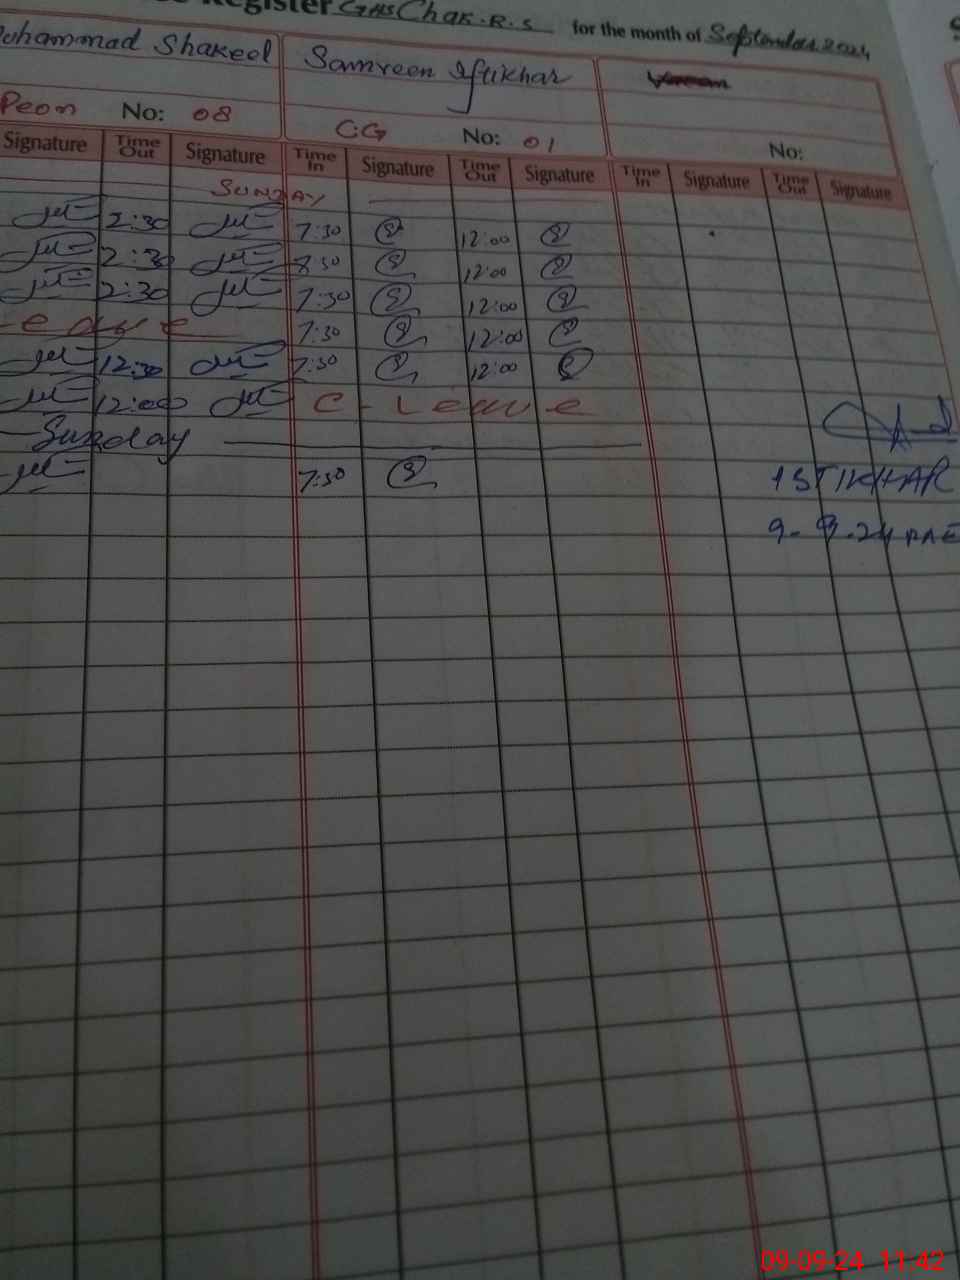 Register GHS Chak.R.S for the month of September 2024
ohammad Shakeel Samreen Iftikhar
Peon No: 08 CG No: 01 No:
Signature Time Out Signature Time In Signature Time Out Signature Time In Signature Time Out Signature
SUNDAY
2:30 7:30 12:00
2:30 7:30 12:00
2:30 7:30 12:00
eave 7:30 12:00
12:30 7:30 12:00
12:00 C-Leave
Sunday
7:30
ISTIKHAR
9-9-24 AAE
09-09-24 11:42